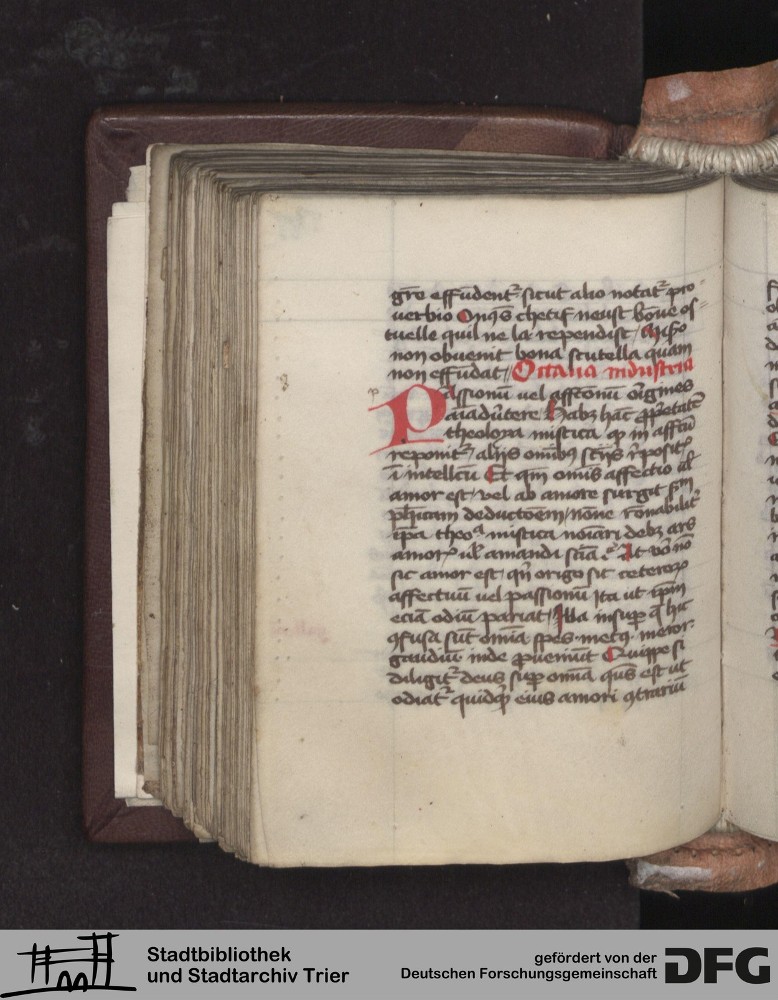 gre effudent sicut alio notat pro
verbio Onqs chetif neust bone os
tuelle quil ne la rependist / Misero
non obvenit bona scutella quam
non effudat / Octava industria
Passionu vel affectionu origines
aiadvertere Habz hac proprietate
theologia mistica q in affectu
reponit / aliis omibus sciis repositis
i intellectu Et qm omis affectio vl
amor est / vel ab amore surgit sm
phicam deductoem / none ronabilit
ipa theoa mistica noiari debz ars
amoris vl amandi scia e At vo no
sic amor est qn origo sit ceteroru
affectuu vel passionu Ita ut ipm
eciam odiu pariat / Illa insup q hic
9fusa sut omia spes metq meror
gaudiu inde proveniut Quippe si
diligit deus sup omia qns est ut
odiat quidqd eius amori 9trariu
Stadtbibliothek
und Stadtarchiv Trier
gefördert von der
Deutschen Forschungsgemeinschaft
DFG